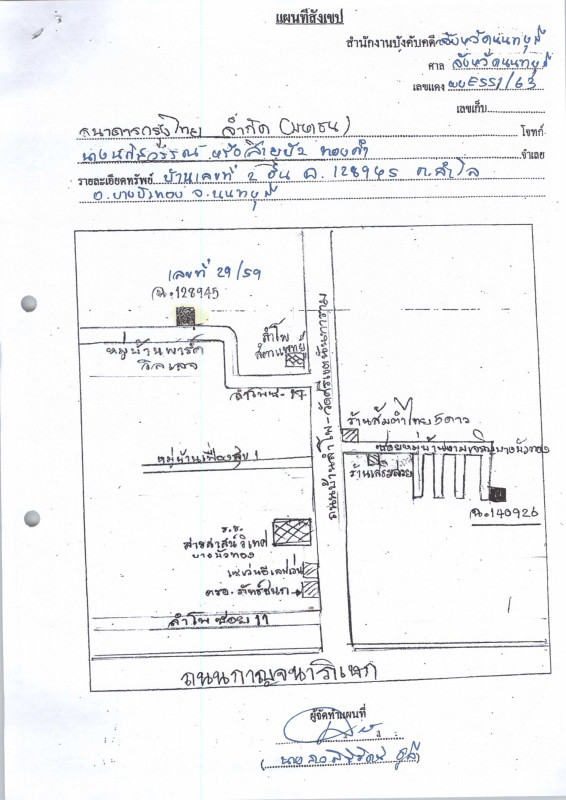 แผนที่สังเขป
สำนักงานบังคับคดี จังหวัดนนทบุรี
ศาล จังหวัดนนทบุรี
เลขแดง ผบE551/63
เลขเก็บ
ธนาคารกรุงไทย จำกัด (มหาชน) โจทก์
หรือ ทองคำ จำเลย
รายละเอียดทรัพย์ บ้านเลขที่ 2 ชั้น ฉ. 128945 ต.ลำโพ
อ.บางบัวทอง จ.นนทบุรี
เลขที่ 29/59
ฉ.128945
หมู่บ้านพาร์ค
วิลเลจ
ลำโพ
ลำโพซ.19
ถนนบ้านลำโพ-วัดศรีเขตนันทาราม
ร้านส้มตำไทย 5ดาว
ซอยหมู่บ้านงามเจริญบางบัวทอง
ร้านเสริมสวย
ฉ.140926
หมู่บ้านเฟื่องสุข 1
ร.ร.
สารสาสน์วิเทศ
บางบัวทอง
เซเว่นอีเลฟเว่น
ตรอ.
ลำโพ ซอย 11
ถนนกาญจนาภิเษก
ผู้จัดทำแผนที่